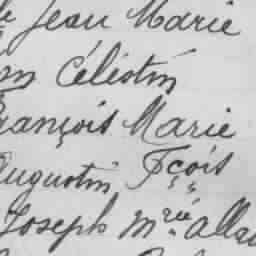 Jean Marie
Célestin
François Marie
Augustin Fçois
Joseph Mrie Alla